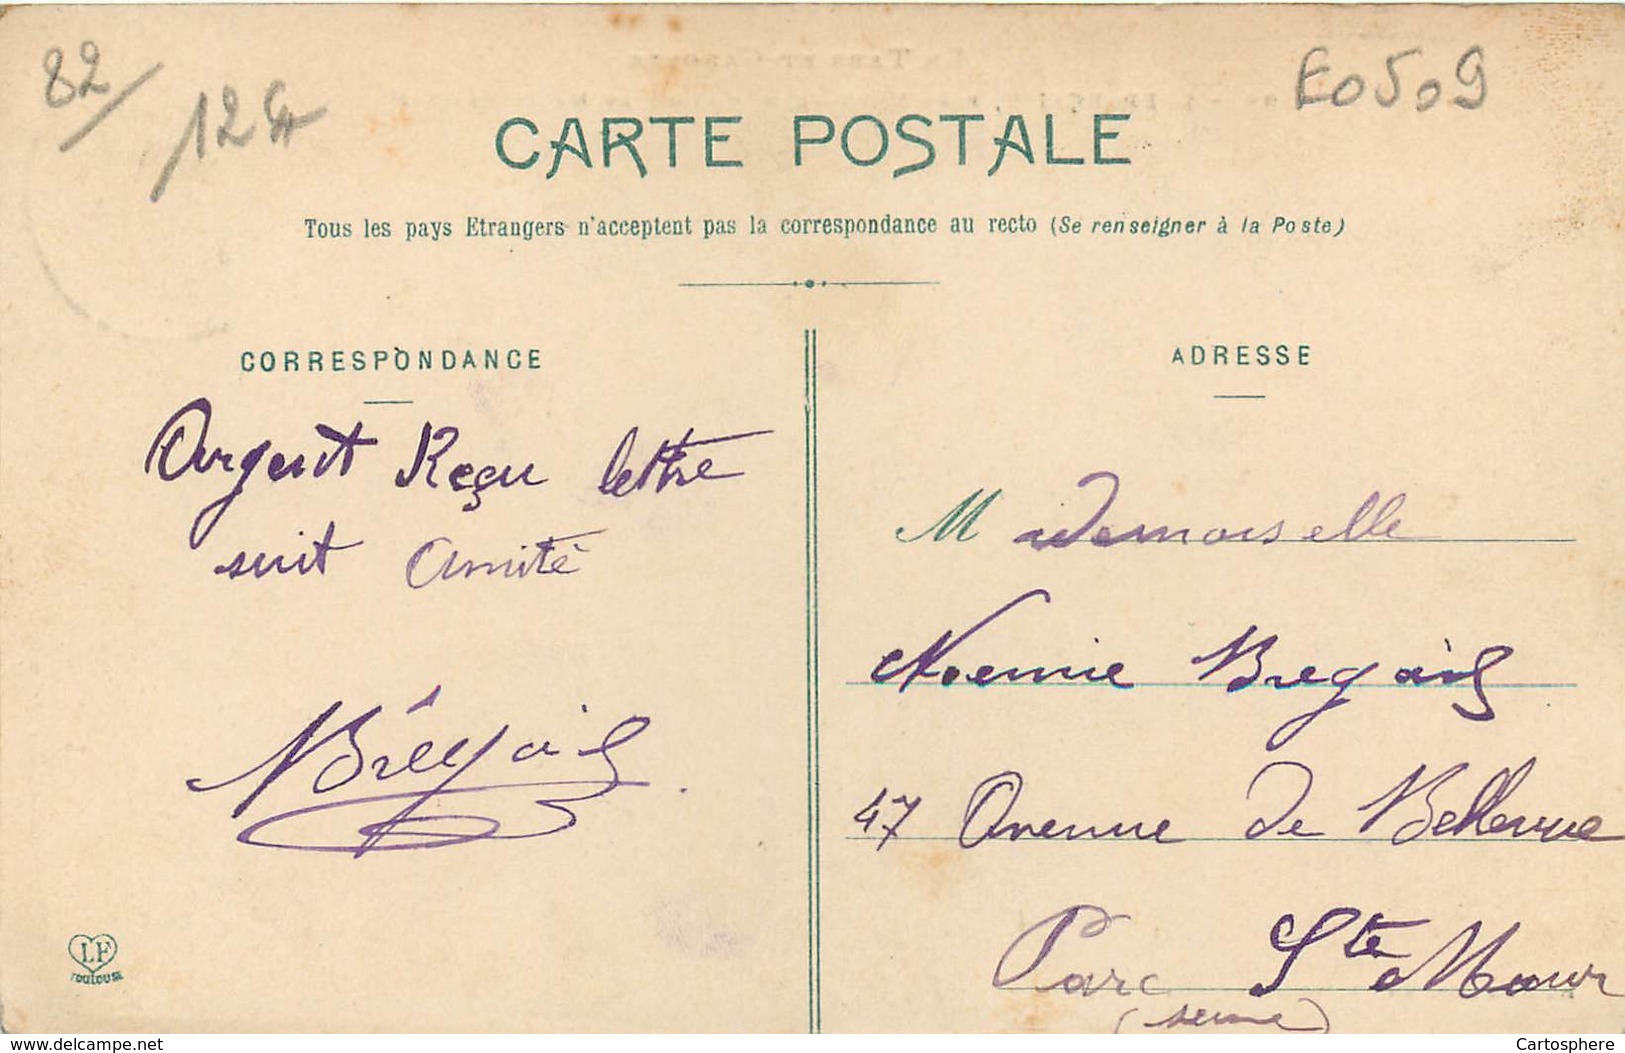 82/
12 Fr
E0509
CARTE POSTALE
Tous les pays Etrangers n'acceptent pas la correspondance au recto (Se renseigner à la Poste)
CORRESPONDANCE
ADRESSE
Argent Reçu lettre
suit Amitié
Brégail
Mademoiselle
Noemie Bregail
47 Avenue de Bellevue
Parc Ste Maur
(seine)
LF
TOULOUSE
delcampe.net
Cartosphere